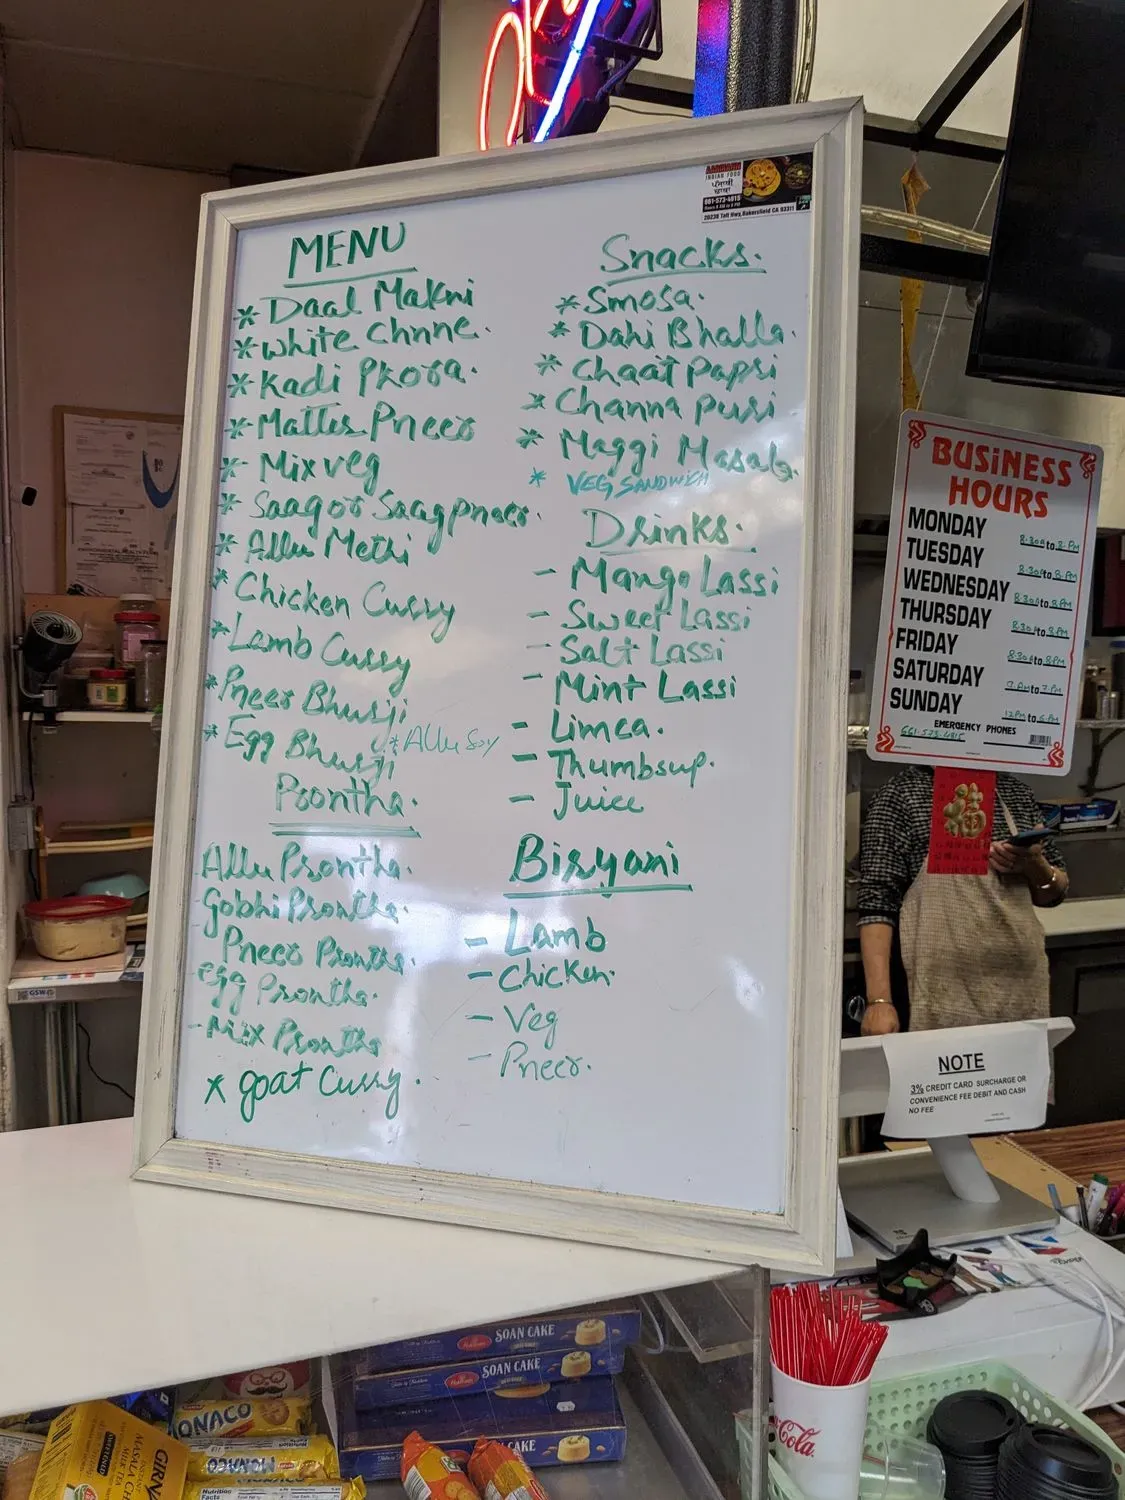 MENU
* Daal Makni
* white Chnne.
* Kadi Pkora.
* Matter Pneer
* Mix veg
* Saag or Saag pneer.
* Allu Methi
* Chicken Curry
* Lamb Curry
* Pneer Bhurji
* Egg Bhurji
* Allu Soy
Prontha.
Allu Prontha.
Gobhi Prontha.
Pneer Prontha.
egg Prontha.
- Mix Prontha
* goat Curry.
Snacks.
* Smosa.
* Dahi Bhalla.
* Chaat Papri
* Channa Puri
* Maggi Masala.
* VEG SANDWICH
Drinks.
- Mango Lassi
- Sweet Lassi
- Salt Lassi
- Mint Lassi
- Limca.
- Thumbsup.
- Juice
Biryani
- Lamb
- Chicken.
- Veg
- Pneer.
INDIAN FOOD
ਪੰਜਾਬੀ
ਢਾਬਾ
661-573-4815
20238 Taft Hwy, Bakersfield CA 93311
BUSINESS
HOURS
MONDAY 8:30A to 8:PM
TUESDAY 8:30A to 8:PM
WEDNESDAY 8:30A to 8PM
THURSDAY 8:30A to 8PM
FRIDAY 8:30A to 8PM
SATURDAY 9AM to 7PM
SUNDAY 12PM to 6PM
EMERGENCY PHONES
661-573-4815
NOTE
3% CREDIT CARD SURCHARGE OR
CONVENIENCE FEE DEBIT AND CASH
NO FEE
SOAN CAKE
SOAN CAKE
CAKE
MONACO
Nutrition
Facts
GIRNAR
MASALA CH
Coca-Cola